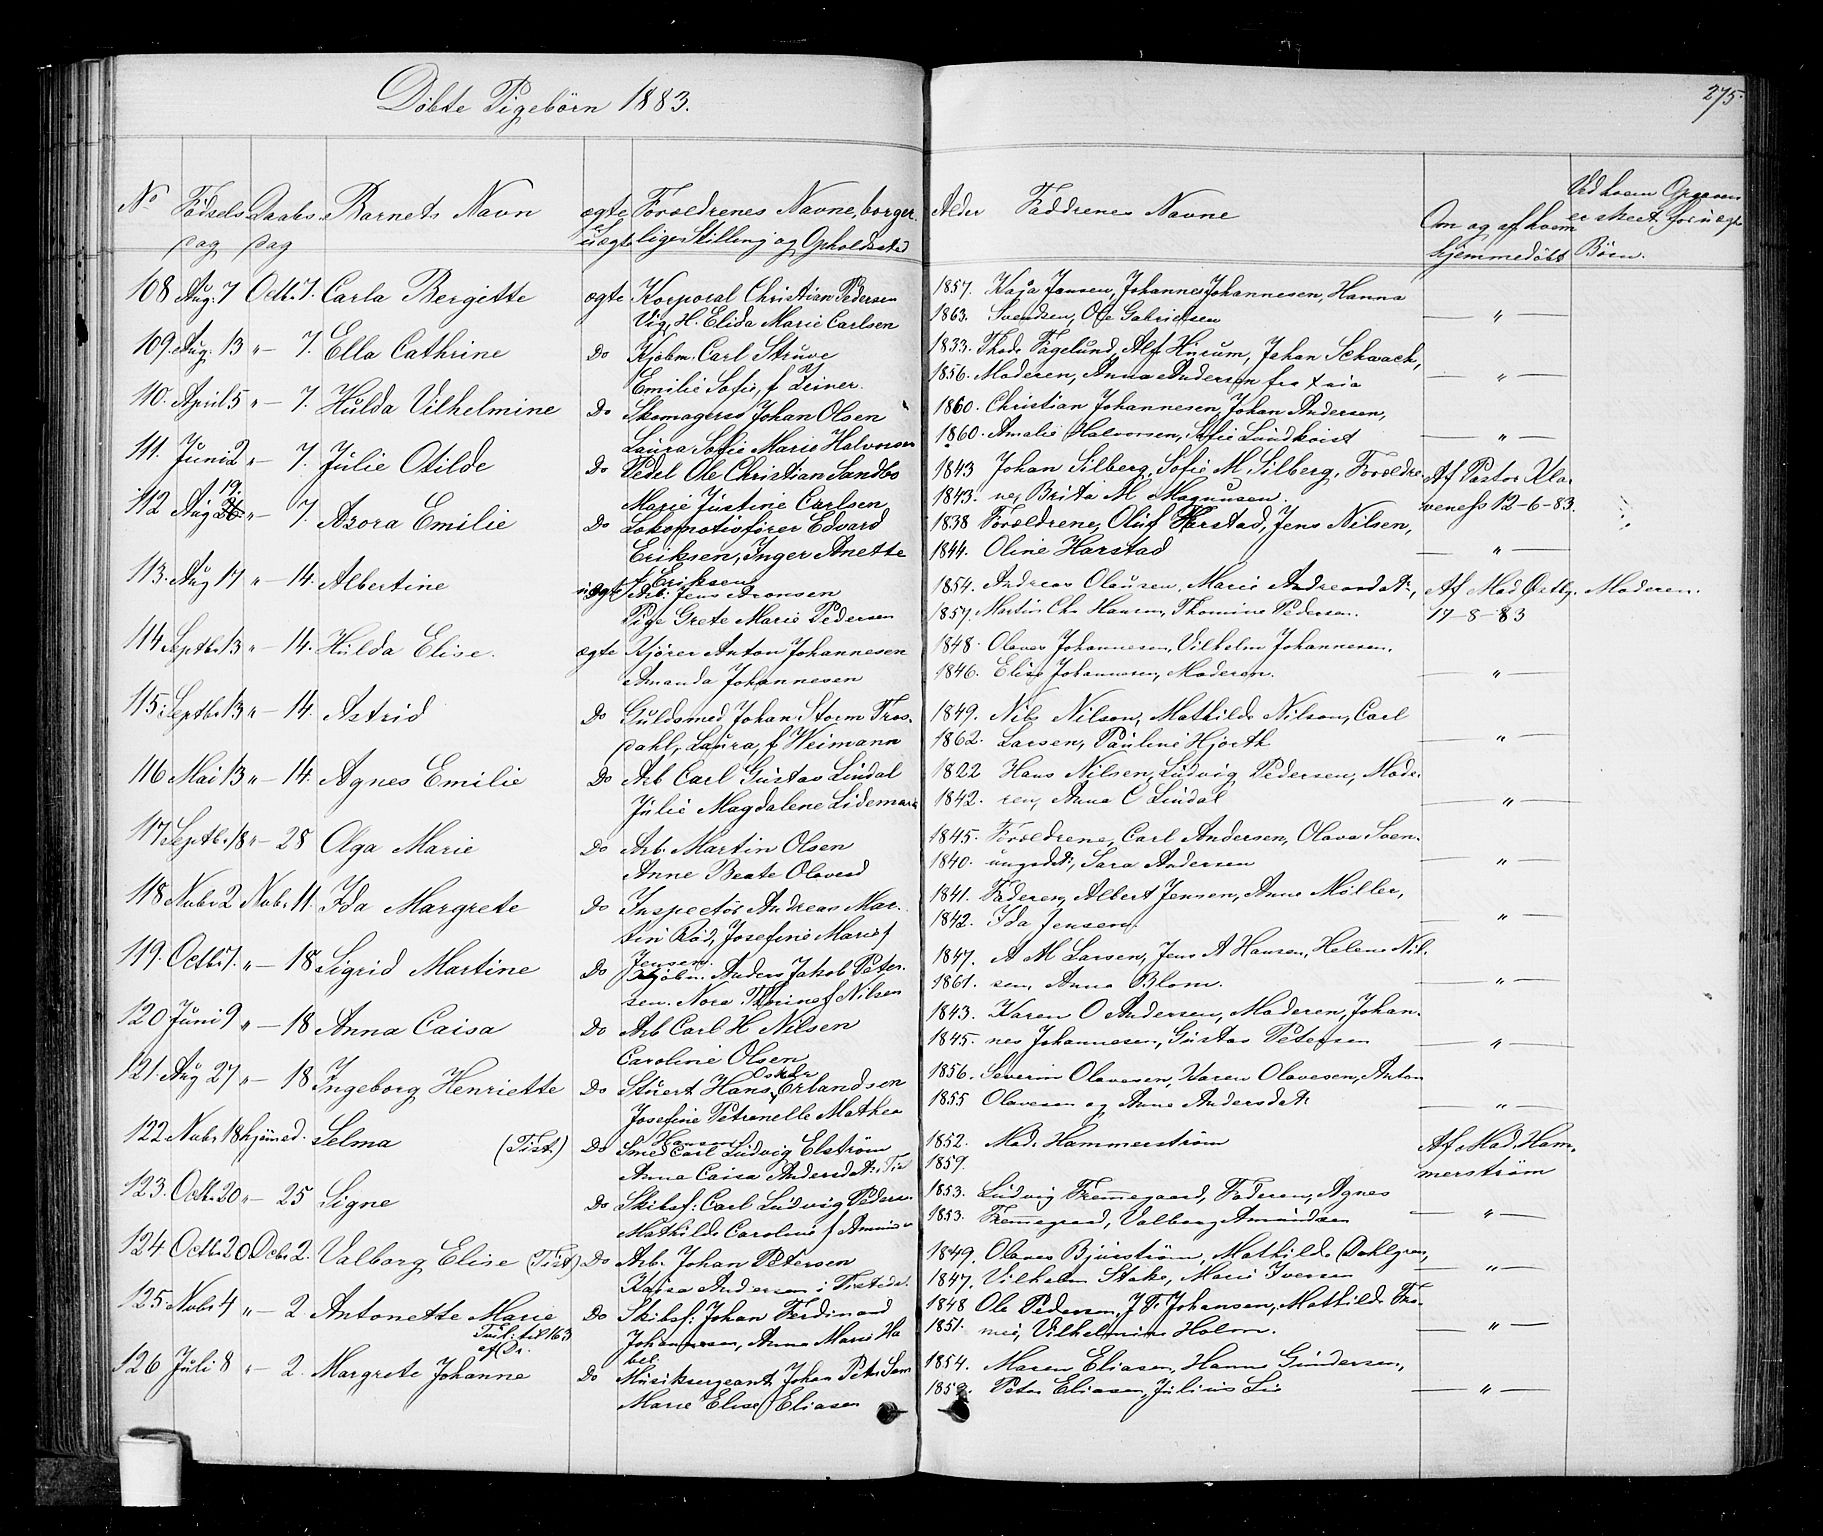 Döbte Pigebörn 1883.
275.
No Födsels Daabs Barnets Navn ægte Forældrenes Navne, borger- Alder Faddrenes Navne Om og af hvem Ved hvem
dag dag uægte lige Stilling og Opholdssted hjemmedöbt er skeet for uægte Börn.
108 Aug. 7 Octb. 7. Carla Bergitte ægte Korporal Christian Pedersen 1857. Kaja Jansen, Johannes Johannesen, Hanna
Vig, H. Elida Marie Carlsen 1863. Svendsen, Ole Gabrielsen — " —
109. Aug. 13 " — 7. Ella Cathrine Do Kjöbm. Carl Struve 1833. Thod. Fagelund, Alf Husum, Johan Schwach,
Emilie Sofie, f Zeiner. 1856. Moderen, Anna Andersen fra — " —
110. April 5 " — 7. Hulda Vilhelmine Do Skomagersv Johan Olsen 1860. Christian Johannesen, Johan Andersen,
Laura Sofie Marie Halvorsen 1860. Amalie Halvorsen, Sofie Lundkvist — " —
111. Juni 2 " — 7. Julie Otilde Do Pedel Ole Christian Sandbo 1843 Johan Silberg, Sofie M Silberg, Forældre- Af Pastor Kla-
Marie Justine Carlsen 1843. ne, Brita M Magnusen. veness 12-6-83.
112 Aug 12 " — 7. Asora Emilie Do Lokomotivförer Edvard 1838 Forældrene, Oluf Harstad, Jens Nilsen,
Eriksen, Inger Anette 1844. Oline Harstad — " —
f Eriksen
113. Aug 17 " — 14. Albertine uægte Arb. Jens Aronsen 1854. Andreas Olausen, Marie Andreasdatr, Af Mad Östby. Moderen.
Pige Grete Marie Pedersen 1857. Martin Chr Hansen, Thomine Pedersen. 17-8-83
114 Septbr 13 " — 14. Hulda Elise. ægte Kjörer Anton Johannesen 1848. Olaves Johannesen, Vilhelm Johannesen,
Amanda Johannesen 1846. Elise Johannesen, Moderen. — " —
115. Septbr 13 " — 14. Astrid Do Guldsmed Johan Storm Tros- 1849. Nils Nilson, Mathilde Nilson, Carl
dahl, Laura, f Weimann 1862. Larsen, Pauline Hjorth — " —
116 Mai 13 " — 14. Agnes Emilie Do Arb Carl Gustav Lindal 1822 Hans Nilsen, Ludvig Pedersen, Mode-
Julie Magdalene Lidemark 1842. ren, Anna C Lindal — " —
117. Septbr 18 " — 28 Olga Marie Do Arb. Martin Olsen 1845. Forældrene, Carl Andersen, Olava Sven-
Anne Beate Olavesd 1840. ungsdatr, Sara Andersen — " —
118 Novbr 2 Novbr 11. Ida Margrete Do Inspectör Andreas Mar- 1841. Faderen, Albert Jensen, Anne Möller,
tin Röd, Josefine Marie f 1842. Ida Jensen. — " —
Jensen.
119. Octb 7. " — 18 Sigrid Martine Do Kjöbm. Anders Jakob Peter- 1847. A M Larsen, Jens A Hansen, Helene Nil-
sen. Nora Thorine f Nilsen 1861. sen, Anna Blom. — " —
120 Juni 9 " — 18 Anna Caisa Do Arb Carl H Nilsen 1843. Karen O Andersen, Moderen, Johan-
Caroline Olsen 1845. nes Johannesen, Gustav Petersen — " —
121. Aug 27 " — 18 Ingeborg Henriette Do Stuert Hans Oskar Erlandsen 1856. Severin Olavesen, Karen Olavesen, Anton
Josefine Petronelle Mathea 1855 Olavesen og Anna Andersdatr — " —
Hansen
122 Novbr 18 hjemmed. Selma (Tist.) Do Smed Carl Ludvig Elström 1852. Mad. Hammerström Af Mad. Ham-
Anna Caisa Andersdatr, Tist 1859. merström
123. Octb. 20 " — 25 Signe Do Skibsf: Carl Ludvig Peders. 1853. Ludvig Fremmegaard, Faderen, Agnes
Mathilde Caroline f Amundsen 1853. Fremmegaard, Valborg Amundsen — " —
124 Octbr 20 Ocb. 2. Valborg Elise (Tist) Do Arb. Johan Petersen 1849. Olaves Bjurström, Mathilde Dahlgren,
Kaisa Andersen i Tistedal. 1847. Vilhelm Stake, Marie Iversen — " —
125 Novbr 4 " — 2. Antonette Marie Do Skibsf: Johan Ferdinand 1848 Ole Pedersen, J. F. Johansen, Mathilde Tho-
Johannesen, Anna Marie Ha- 1851. mei, Vilhelmine Holm. — " —
bel
126 Juli 8 " — 2. Margrete Johanne Do Musiksergeant Johan Peter Sam 1854. Maren Eliasen, Hanna Gundersen,
Marie Elise f Eliasen 1859. Peter Eliasen, Julius Lie — " —